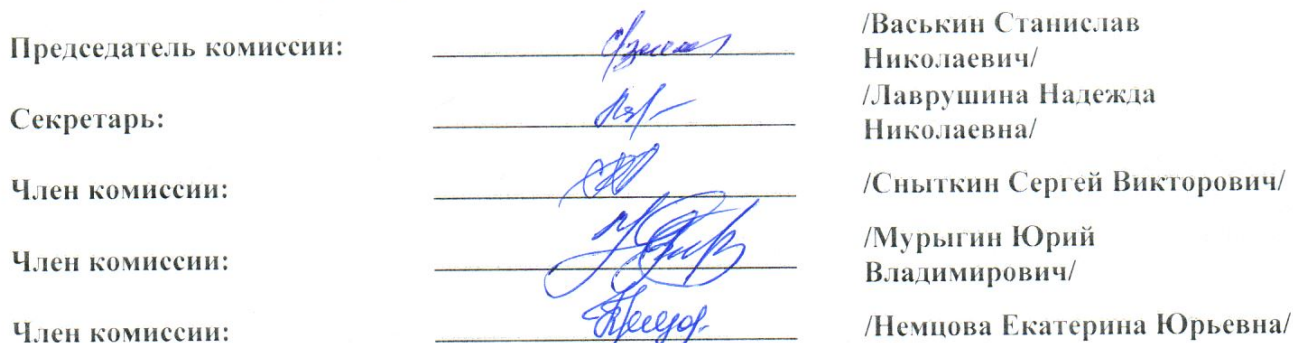 Председатель комиссии:
/Васькин Станислав
Николаевич/
Секретарь:
/Лаврушина Надежда
Николаевна/
Член комиссии:
/Сныткин Сергей Викторович/
Член комиссии:
/Мурыгин Юрий
Владимирович/
Член комиссии:
/Немцова Екатерина Юрьевна/